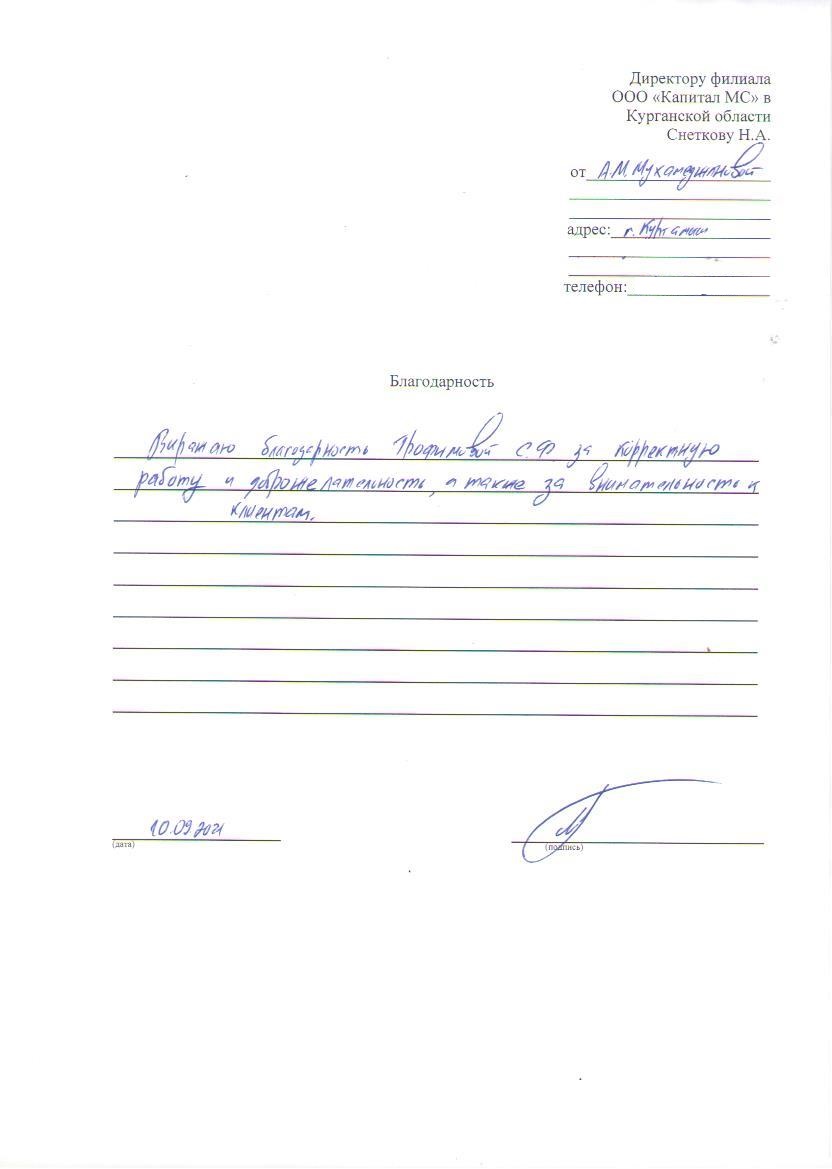 Директору филиала
ООО «Капитал МС» в
Курганской области
Снеткову Н.А.
от А.М. Мухамеджановой
адрес: г. Куртамыш
телефон:
Благодарность
Выражаю благодарность Трофимовой С.Ф. за корректную
работу и доброжелательность, а также за внимательность к
клиентам.
10.09.2021
(дата)
(подпись)